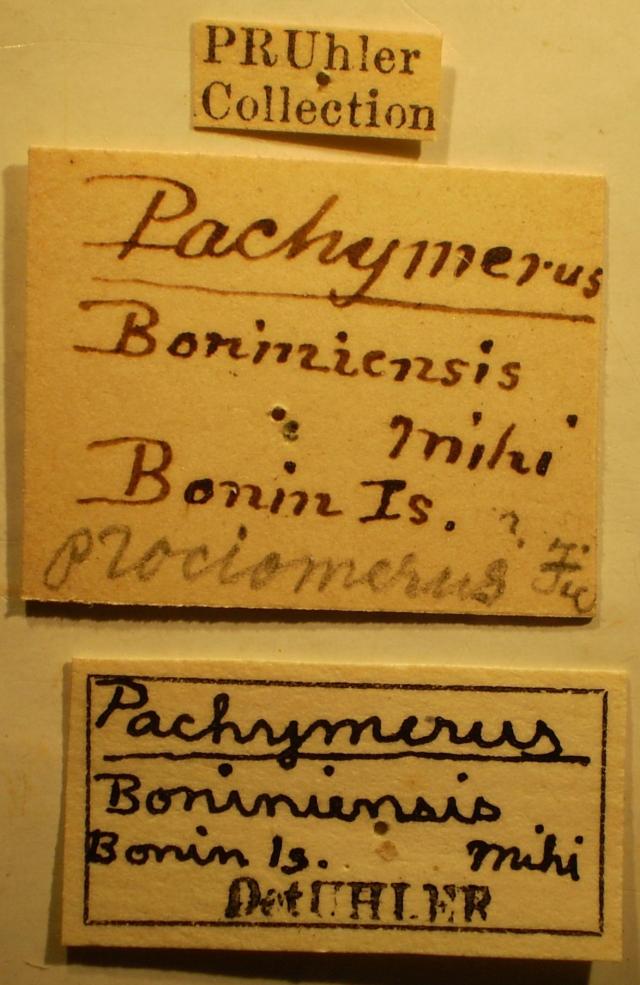 PRUhler
Collection
Pachymerus
Boniniensis
mihi
Bonin Is.
prociomerus ?
Pachymerus
Boniniensis
Bonin Is. mihi
Det UHLER